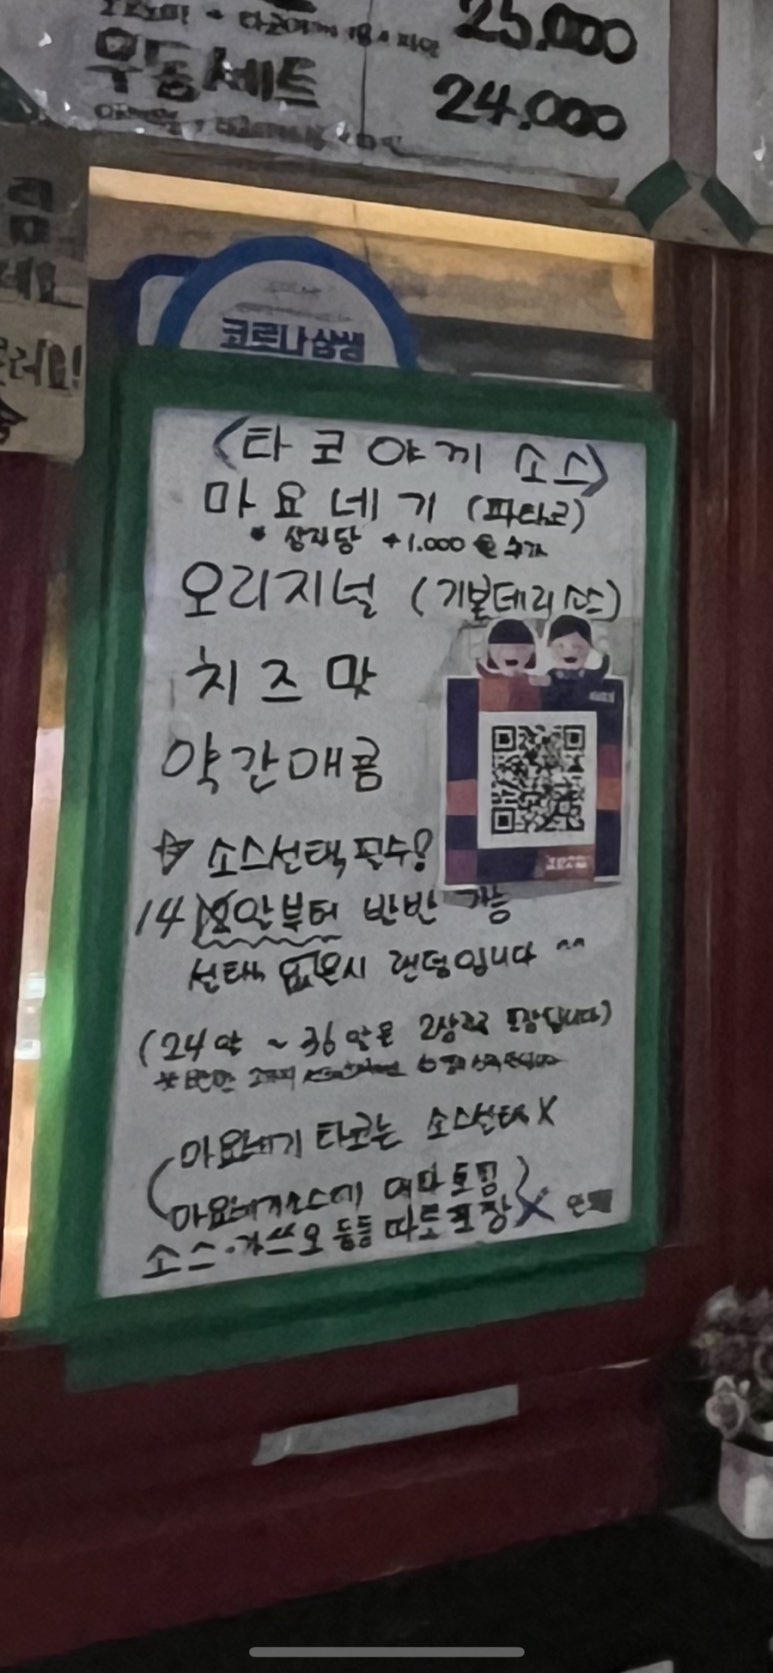 25,000
우동세트
24,000
코로나상생
<타코야끼 소스>
마요네기 (파타코)
* 상자당 +1.000원 추가
오리지널 (기본데리소스)
치즈맛
약간매콤
☆ 소스선택 필수!
14알부터 반반 가능
선택 없을시 랜덤입니다 ^^
(24알 ~ 36알은 2상자로 포장됩니다)
마요네기 타코는 소스선택 X
마요네기소스에 포함
소스·가쓰오 등등 따로포장 X